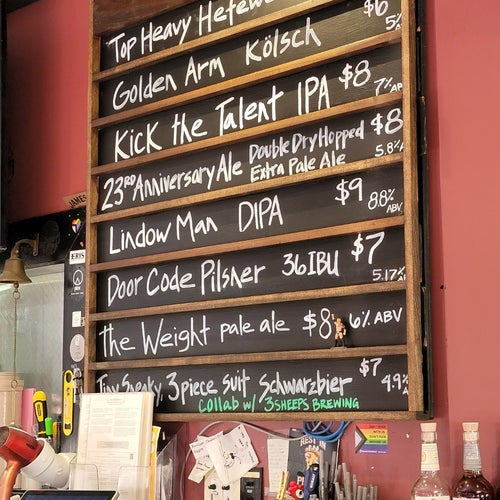 Top Heavy
$6
5%
Golden Arm Kölsch
Kick the Talent IPA $8
7%
23RD Anniversary Ale Double Dry Hopped
Extra Pale Ale $8
5.8%
Lindow Man DIPA $9
8.8%
ABV
Door Code Pilsner 36 IBU $7
5.17%
The Weight pale ale $8 6% ABV
Tiny Sneaky, 3 piece suit Schwarzbier $7
4.9%
Collab w/ 3 SHEEPS BREWING
JAMES
REST IN